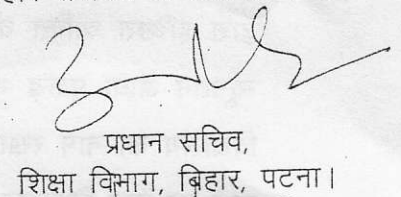 प्रधान सचिव,
शिक्षा विभाग, बिहार, पटना।